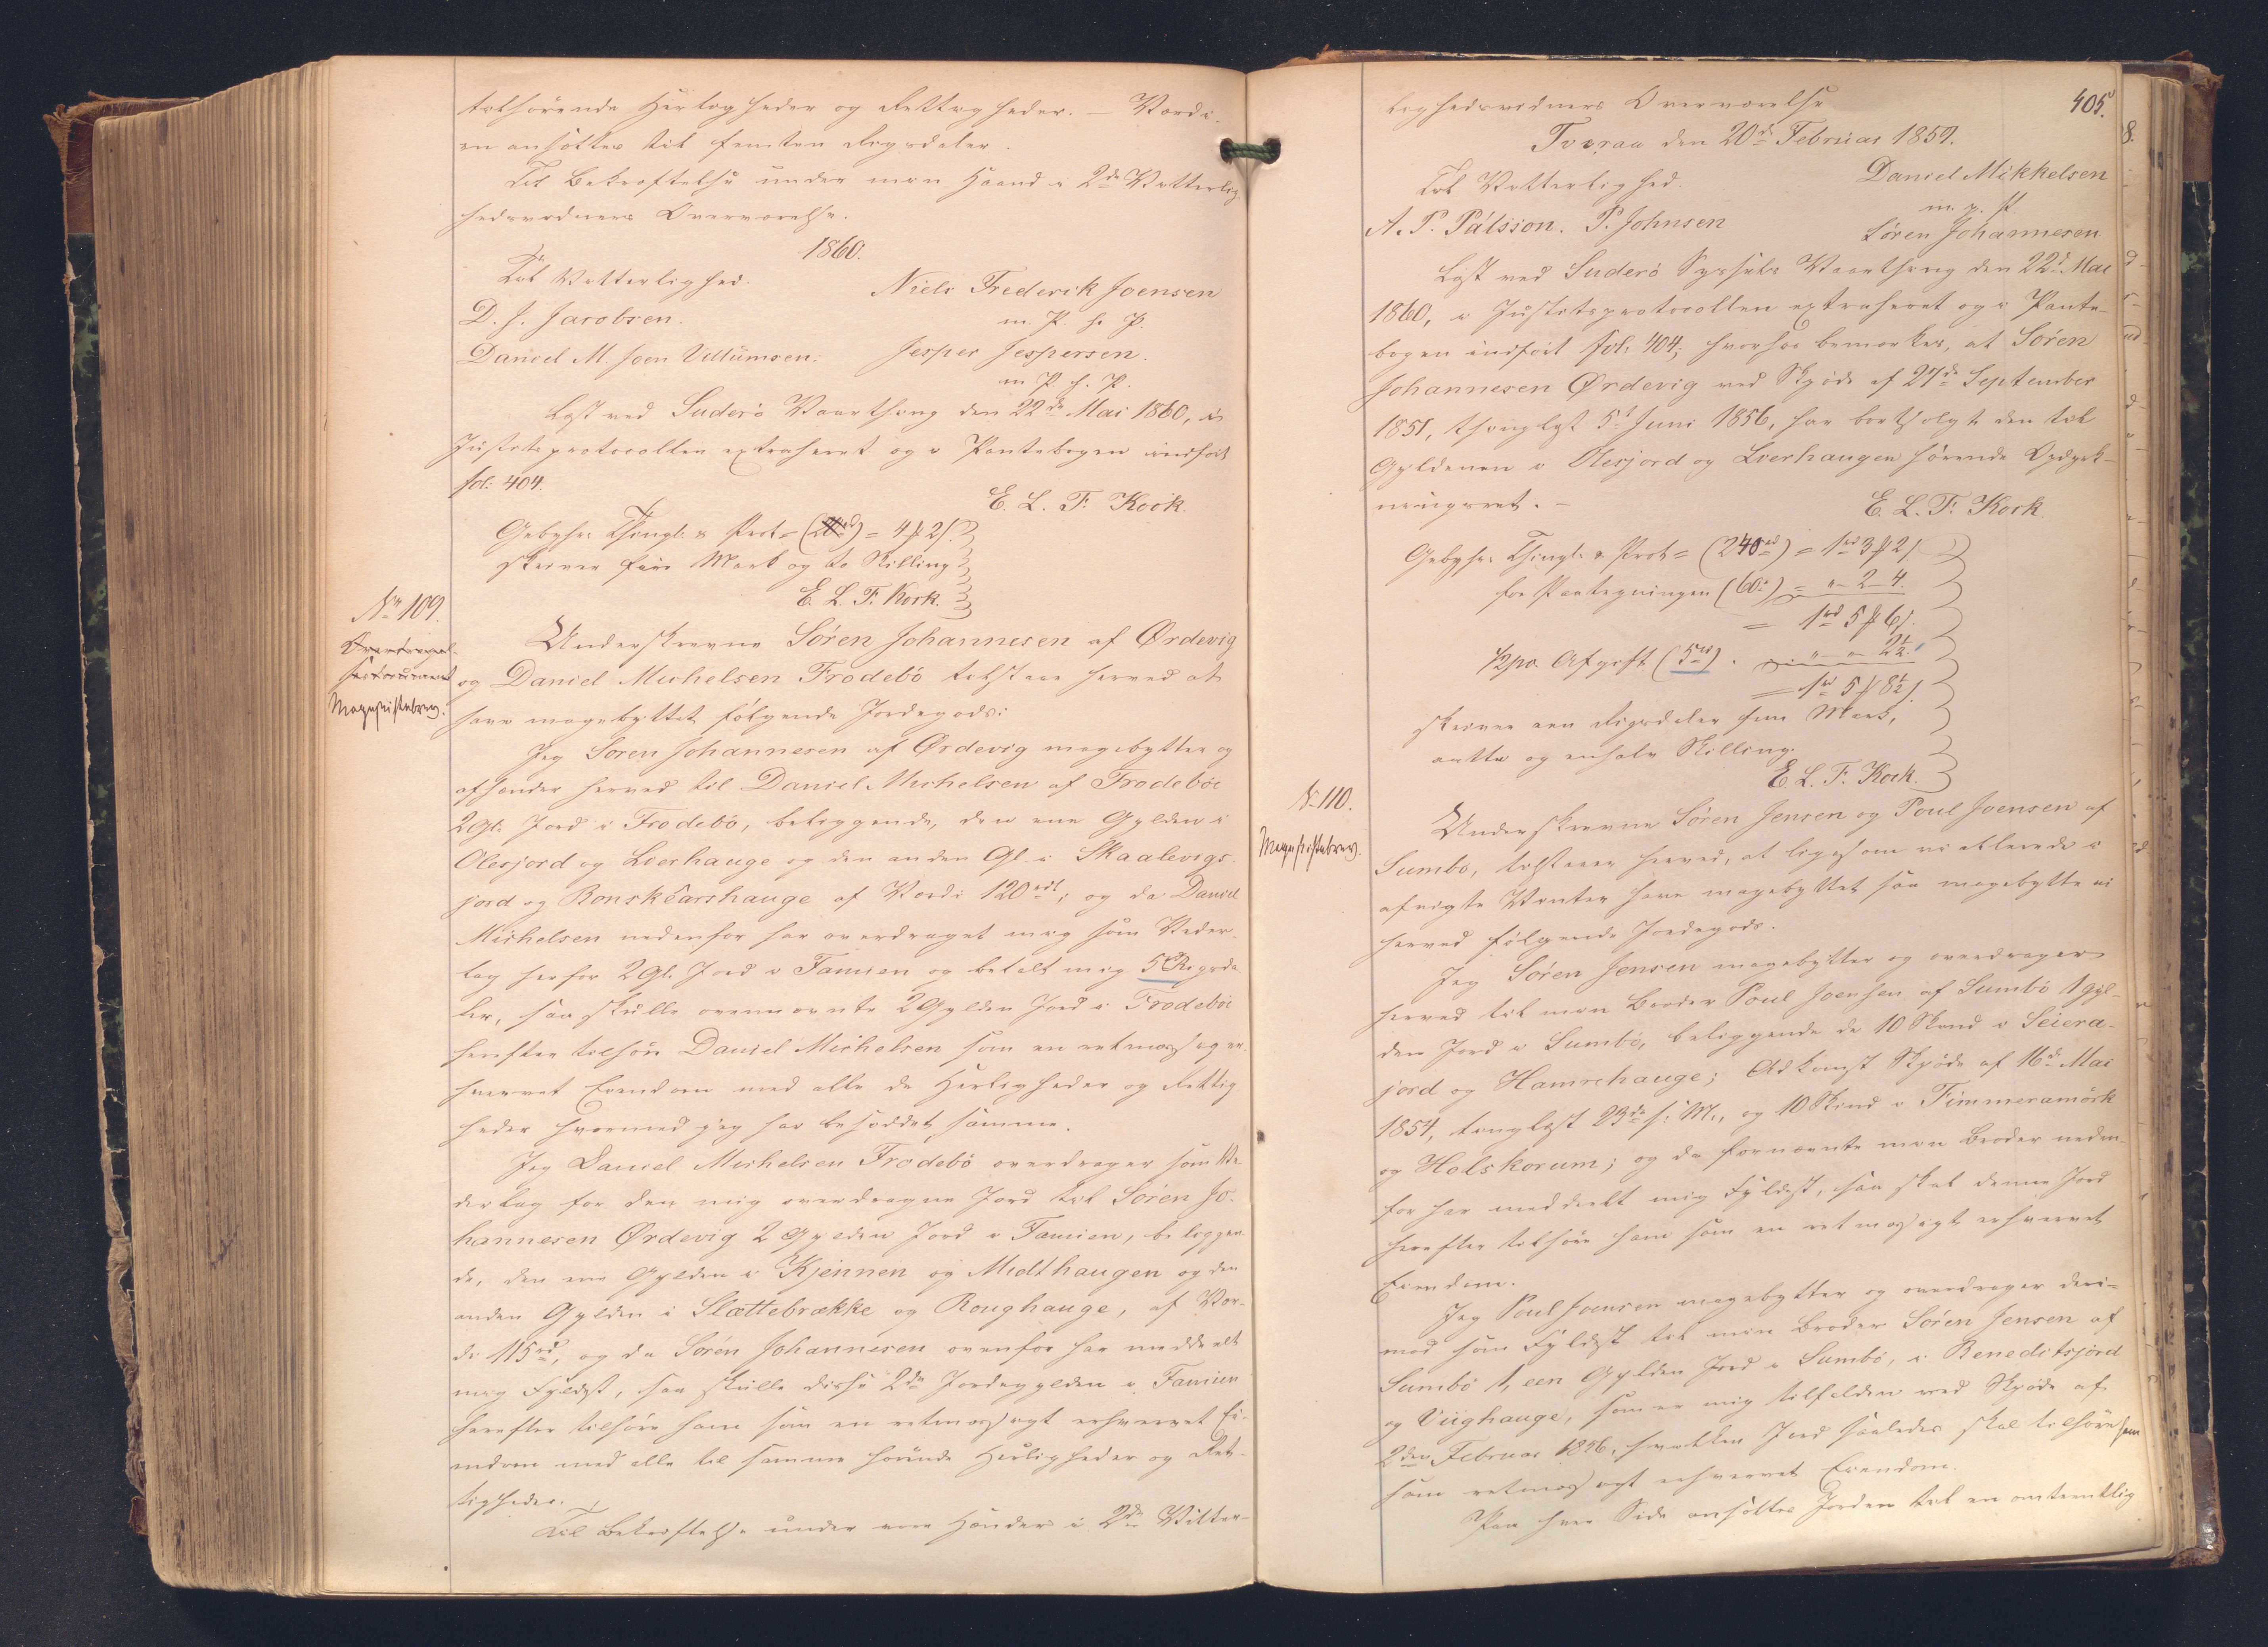 tilhørende Herligheder og Rettigheder. — Værdi-
en ansættes til femten Rigsdaler.
Til Bekræftelse under min Haand i 2de Vitterlig-
hedsvidners Overværelse.
1860.
Til Vitterlighed.
Niels Frederik Joensen
D. J. Jacobsen.
m. P. f. P.
Daniel M. Joen Villumsen.
Jesper Jespersen.
m. P. f. P.
Læst ved Suderø Vaarthing den 22de Mai 1860, i
Justitsprotocollen extraheret og i Pantebogen indført
fol: 404.
E. L. F. Kock.
Gebyhr: Thingl: & Prot = () = 4 ₰ 2 ſ.
skriver fire Mark og to Skilling
E. L. F. Kock.
No 109.
Magesk[iftebrev].
Underskrevne Søren Johannesen af Ørdevig
og Daniel Michelsen Frodebø tilstaae herved at
have magebyttet følgende Jordegods:
Jeg Søren Johannesen af Ørdevig magebytter og
afhænder herved til Daniel Michelsen af Frodebøe
2 Gl. Jord i Frodebø, beliggende, den ene Gylden i
Olesjord og Lierhauge og den anden Gl. i Skaalevigs-
jord og Ronskéarshauge af Værdi 120 rdl; og da Daniel
Michelsen nedenfor har overdraget mig som Veder-
lag herfor 2 Gl. Jord i Famien og betalt mig 5 Rigsda-
ler, saa skulle ovennævnte 2 Gylden Jord i Frodebøe
herefter tilhøre Daniel Michelsen som en retmæssig er-
hvervet Eiendom med alle de Herligheder og Rettig-
heder hvormed jeg har besiddet samme.
Jeg Daniel Michelsen Frodebø overdrager som Ve-
derlag for den mig overdragne Jord til Søren Jo-
hannesen Ørdevig 2 Gylden Jord i Famien, beliggen-
de, den ene Gylden i Kjennen og Midthaugen og den
anden Gylden i Slættebrække og Roughauge, af Vær-
di 115 rd, og da Søren Johannesen ovenfor har meddeelt
mig Fyldest, saa skulle disse 2de Jordegylden i Famien
herefter tilhøre ham som en retmæssigt erhvervet Ei-
endom med alle til samme hørende Herligheder og Ret-
tigheder.
Til Bekræftelse under vore Hænder i 2de Vitter-
405.
lighedsvidners Overværelse
Tveraa den 20de Februar 1859.
Til Vitterlighed.
Daniel Mikkelsen
m. p. P.
A. P. Pálsson. P. Johnsen
Søren Johannesen
Læst ved Suderø Syssels Vaarthing den 22de Mai
1860, i Justitsprotocollen extraheret og i Pante-
bogen indført fol: 404; hvorhos bemærkes, at Søren
Johannesen Ørdevig ved Skjøde af 27de September
1851, thinglæst 5te Juni 1856, har bortsolgt den til
Gyldenen i Olesjord og Lierhaugen hørende Opdyrk-
ningsret. —
E. L. F. Kock
Gebyhr: Thingl: & Prot = (240 rd) = 1 rd 3 ₰ 2 ſ
for Paategningen (60 s) = " – 2 – 4.
= 1 rd 5 ₰ 6 ſ.
½ pCt. Afgift (5 rd). " – " – 2½
= 1 rd 5 ₰ 8½ ſ.
skriver een Rigsdaler fem Mark,
aatte og enhalv Skilling.
E. L. F. Kock.
No 110.
Mageskiftebrev.
Underskrevne Søren Jensen og Poul Joensen af
Sumbø, tilstaaer herved, at ligesom vi allerede i
afvigte Vinter have magebyttet saa magebytte vi
herved følgende Jordegods.
Jeg Søren Jensen magebytter og overdrager
herved til min Broder Poul Joensen af Sumbø 1 Gyl-
den Jord i Sumbø, beliggende de 10 Skind i Seiera-
jord og Hamrehauge; Adkomst Skjøde af 16de Mai
1854, tinglæst 23de s: M., og 10 Skind i Timmeramørk
og Holskorum; og da fornævnte min Broder neden-
for har meddeelt mig Fyldest, saa skal denne Jord
herefter tilhøre ham som en retmæssigt erhvervet
Eiendom.
Jeg Poul Joensen magebytter og overdrager deri-
mod som Fyldest til min Broder Søren Jensen af
Sumbø 1, een Gylden Jord i Sumbø, i Beneditsjord
og Viighauge, som er mig tilfalden ved Skjøde af
2den Februar 1826, hvilken Jord saaledes skal tilhøre ham
som retmæssigt erhvervet Eiendom.
Paa hver Side ansættes Jorden til en omtrentlig